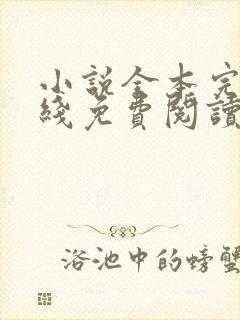 小说全本完
綫免費閱讀
浴池中的螃蟹